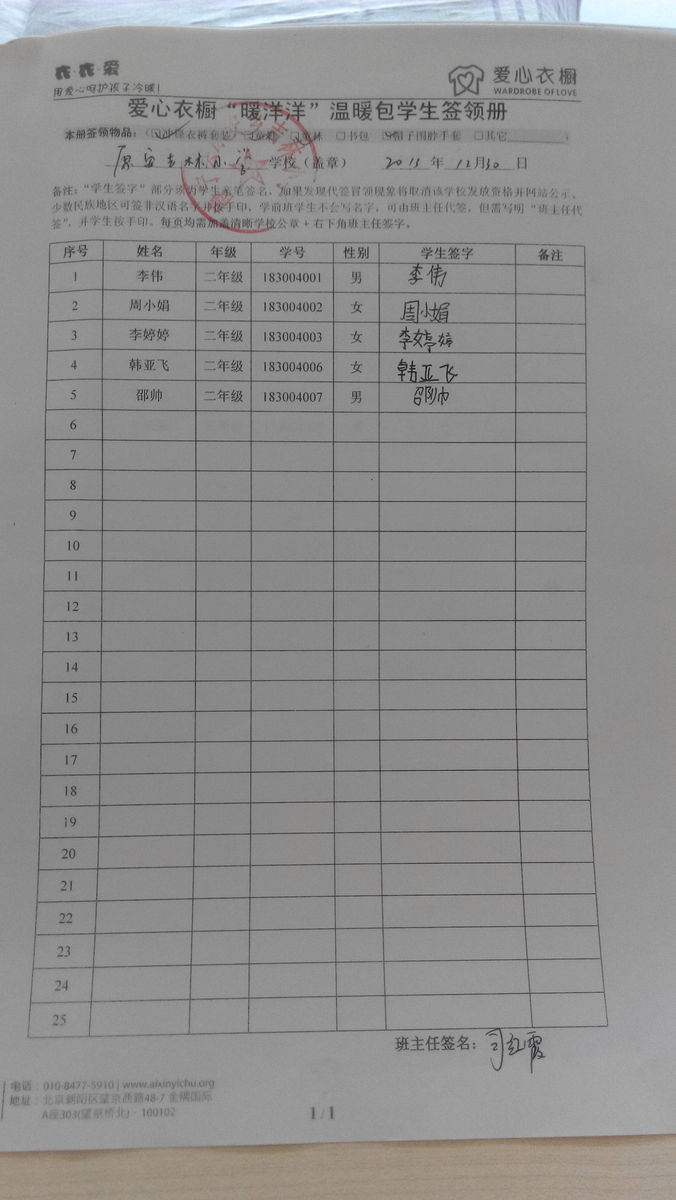 衣·衣·爱
用爱心呵护孩子冷暖！
爱心衣橱
WARDROBE OF LOVE
爱心衣橱“暖洋洋”温暖包学生签领册
本册签领物品：（☑冲锋衣裤套装 ☑ ☑ □书包 ☑帽子围脖手套 □其它 ）
吉林小学 学校（盖章） 2015 年 12月30 日
备注：“学生签字”部分须为学生亲笔签名，如果发现代签冒领现象将取消该学校发放资格并网站公示。
少数民族地区可签非汉语名字并按手印，学前班学生不会写名字，可由班主任代签，但需写明“班主任代
签”，并学生按手印。每页均需加盖清晰学校公章+右下角班主任签字。
序号 姓名 年级 学号 性别 学生签字 备注
1 李伟 二年级 183004001 男 李伟
2 周小娟 二年级 183004002 女 周小娟
3 李婷婷 二年级 183004003 女 李婷婷
4 韩亚飞 二年级 183004006 女 韩亚飞
5 邵帅 二年级 183004007 男 邵帅
6
7
8
9
10
11
12
13
14
15
16
17
18
19
20
21
22
23
24
25
班主任签名：司红霞
电话：010-8477-5910 | www.aixinyichu.org
地址：北京朝阳区望京西路48-7 金隅国际
A座303(望京桥北)·100102
1/1